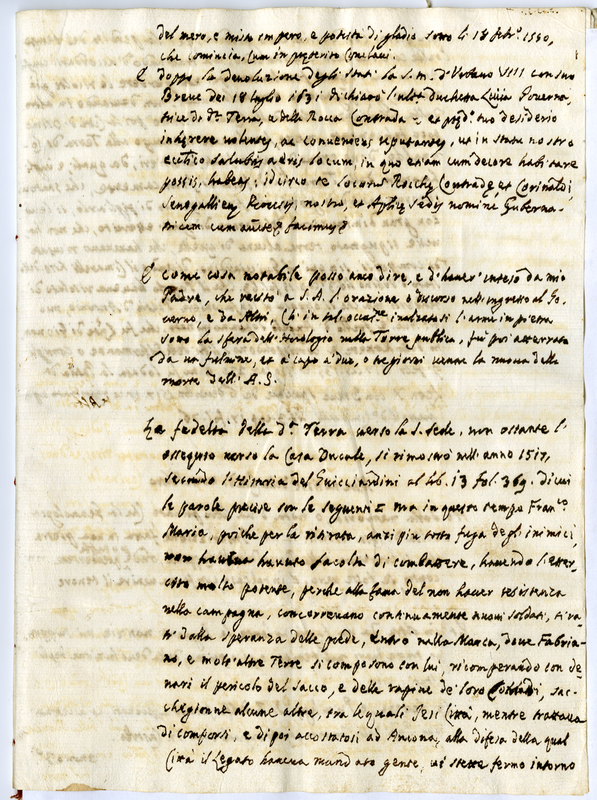 del mero, e misto impero, e potestà di gladio sotto li 18 febr.º 1580,
che comincia, Cum in præterito Conclavi.
E doppo la devoluzione degli Stati la S.M. d'Urbano VIII con suo
Breve dei 18 luglio 1631 dichiarò l'ult.ª Duchessa Livia Governa,
trice di d.ª Terra, e della Rocca Contrada = et pr. tuo desiderio
inhærere volentes, ac convenienes reputantes, ut in statu nostro
eccl.ico salubris aeris locum, in quo etiam cum decore habitare
possis, habeas; idcirco te locorum Rocche Contradæ, et Corinaldi,
Senogallien Diocesis, nostro, et Aplicæ Sedis nomine Guberna-
tricem cum facimus
E come cosa notabile posso anco dire, e d'haver inteso da mio
Padre, che recitò a S.A. l'orazione o discorso nell'ingresso al Go-
verno, e da Altri, ch'in tal occ.ne inalzatosi l'arme in pietra
sotto la sfera dell'Horologio nella Torre publica, fù poi atterrata
da un fulmine, et a capo a due, o tre giorni venne la nuova della
morte dell'A.S.
La fedeltà della d.ª Terra verso la S. Sede, non ostante l'
ossequio verso la Casa Ducale, si rimostrò nell'anno 1517,
secondo l'Historia del Guicciardini al lib. 13 fol. 369. di cui
le parole precise son le seguenti = ma in questo tempo Fran.co
Maria, poiche per la ritirata, anzi più tosto fuga degli inimici,
non havuto facoltà di combattere, havendo l'eser,
cito molto potente, perche alla fama del non haver resistenza
nella campagna, concorrevano continuamente nuovi soldati, tira,
ti dalla speranza delle prede, entrò nella Marca, dove Fabria-
no, e molt'altre Terre si composono con lui, ricomperando con de-
nari il pericolo del sacco, e della rapine de' loro soldati, sac-
cheggionne alcune altre, tra le quali Jesi Città, mentre trattava
di comporsi, e di poi accostatosi ad Ancona, alla difesa della qual
Città il Legato haveva mandato gente, vi stette fermo intorno